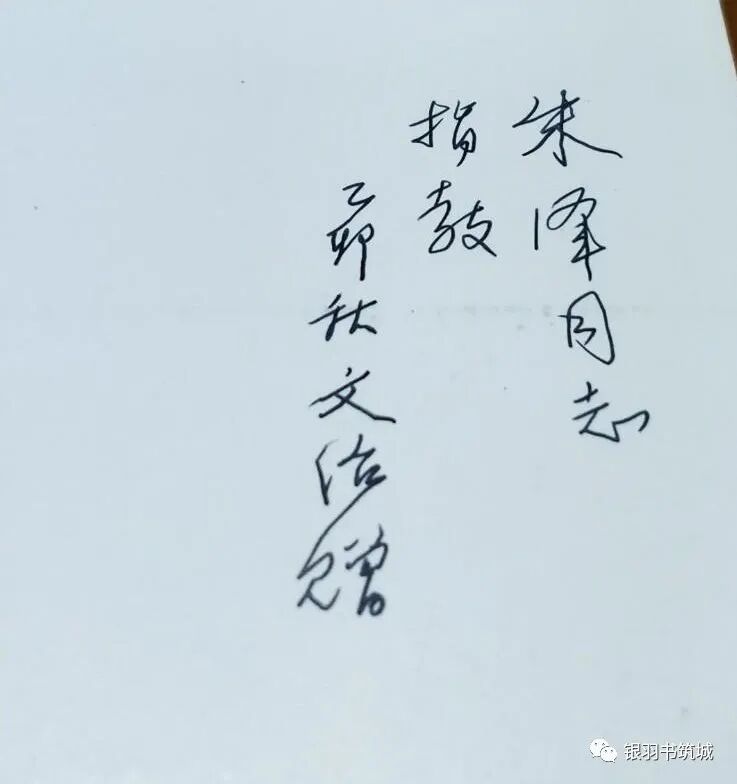 朱泽同志
指教
乙卯秋文治赠
银羽书筑城